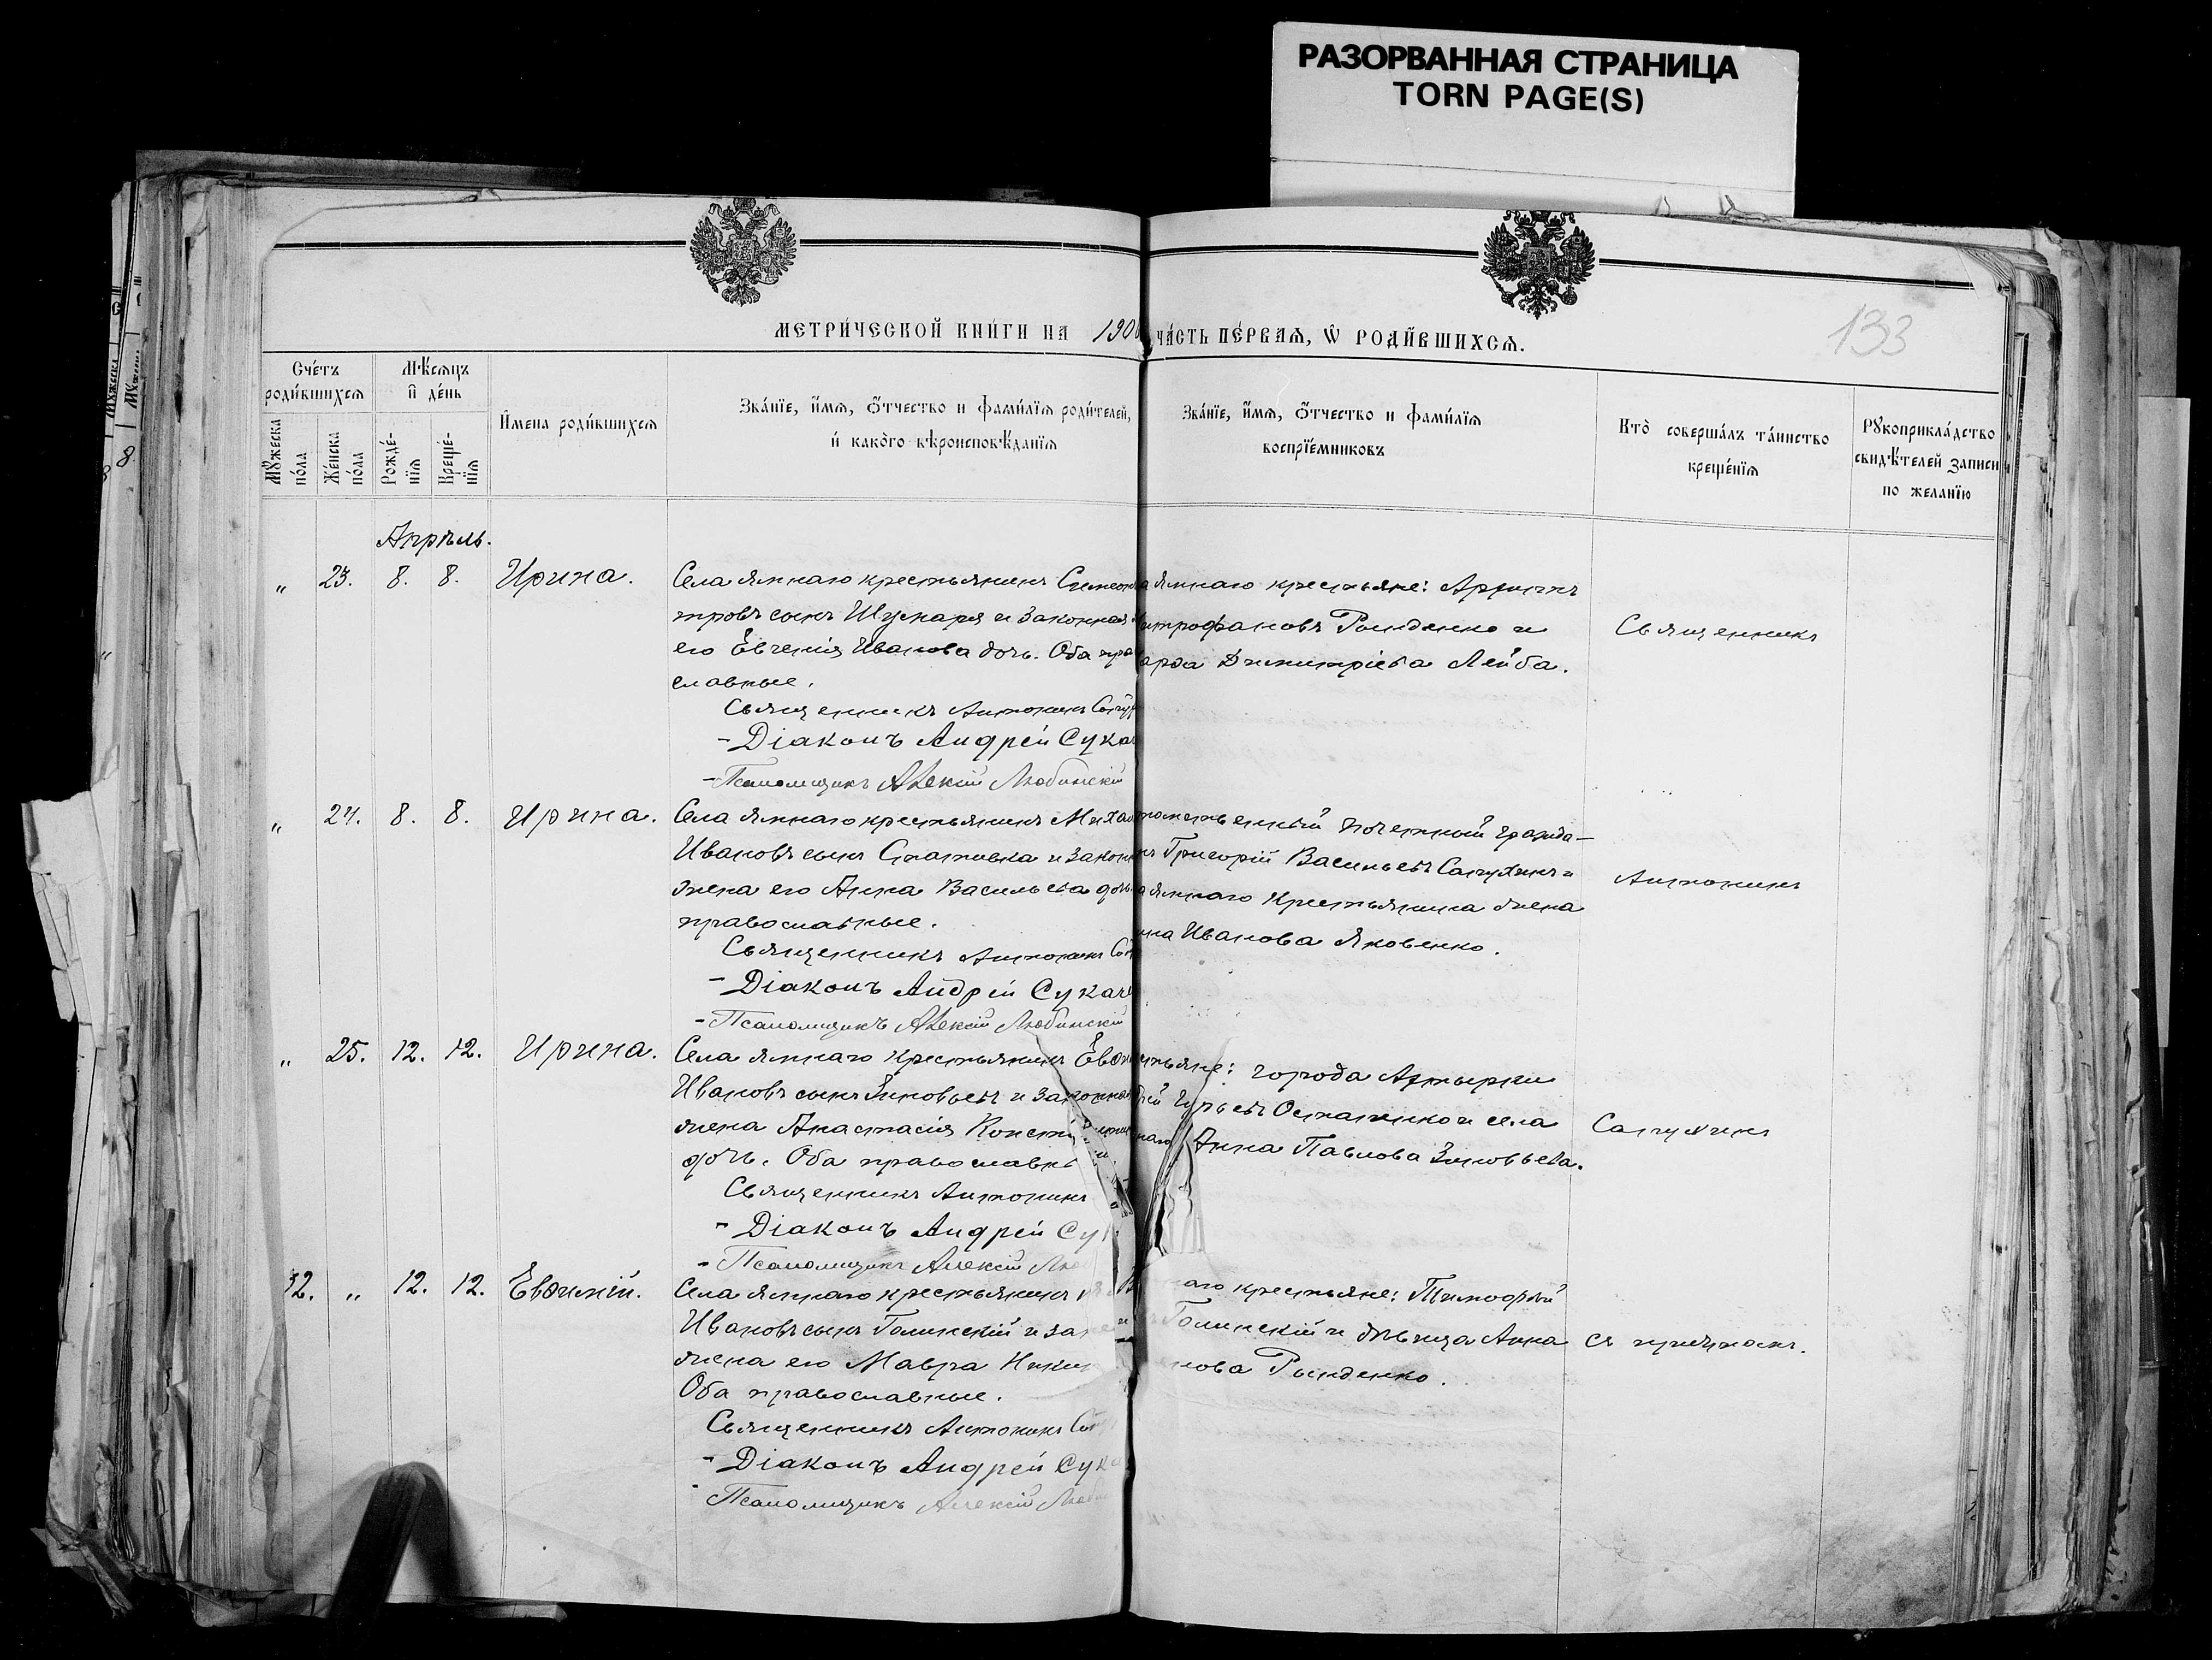 РАЗОРВАННАЯ СТРАНИЦА
TORN PAGE(S)
МЕТРИ́ЧЕСКОЙ КНИ́ГИ НА 190
ЧА́СТЬ ПЕ́РВАѦ, Ѡ҆ РОДИ́ВШИХСѦ.
133
Сче́тъ роди́вшихсѧ
Мѣ́сѧцъ и҆ де́нь
И҆мена роди́вшихсѧ
Зва́нїе, и҆́мѧ, ѻ҆́тчество и фами́лїѧ роди́телей,
и҆ како́го вѣроисповѣ́данїѧ
Зва́нїе, и҆́мѧ, ѻ҆́тчество и фами́лїѧ
воспрїе́мниковъ
Кто̀ соверша́лъ та́инство
креще́нїѧ
Рꙋкоприкла́дство
свидѣ́телей записи
по желанїю
Мꙋ́жеска по́ла
Же́нска по́ла
Рожде́нїѧ
Креще́нїѧ
Апрѣль.
„ 23. 8. 8. Ирина.
Села Ямнаго крестьянинъ Симеонъ
тровъ сынъ Шускаря и законная
его Евгенія Иванова дочь. Оба пра
славные.
Священникъ Антонинъ
- Діаконъ Андрей Сука
- Псаломщикъ Алексій Любинскій
Ямнаго крестьяне:
итрофановъ Рынденко и
Димитріева Лейба.
Священникъ
„ 24. 8. 8. Ирина.
Села Ямнаго крестьянинъ Миха
Ивановъ сынъ Статывка и закон
жена его Анна Васильева дочь
православные.
Священникъ Антонинъ
- Діаконъ Андрей Сукаче
- Псаломщикъ Алексій Любинскій
почетный гражда-
нъ Григорій Васильевъ Сапухинъ и
Ямнаго крестьянина жена
Иванова Яковенко.
Антонинъ
„ 25. 12. 12. Ирина.
Села Ямнаго крестьянинъ
Ивановъ сынъ Зиновьевъ и законная
жена Анастасія Конст
дочь. Оба православн
Священникъ Антонинъ
- Діаконъ Андрей Су
- Псаломщикъ Алексій Люб
стьяне: города Ахтырки
Гурьевъ Остапенко и села
наго Анна Павлова Зиновьева.
Сапухинъ
12. „ 12. 12. Евѳимій.
Села Ямнаго крестьянинъ
Ивановъ сынъ Голинскій и за
жена его Мавра Ники
Оба православные.
Священникъ Антонинъ
- Діаконъ Андрей Сука
Псаломщикъ Алексій Люб
наго крестьяне: Тимофей
Голинскій и дѣвица Анна
нова Рынденко.
съ причтомъ.